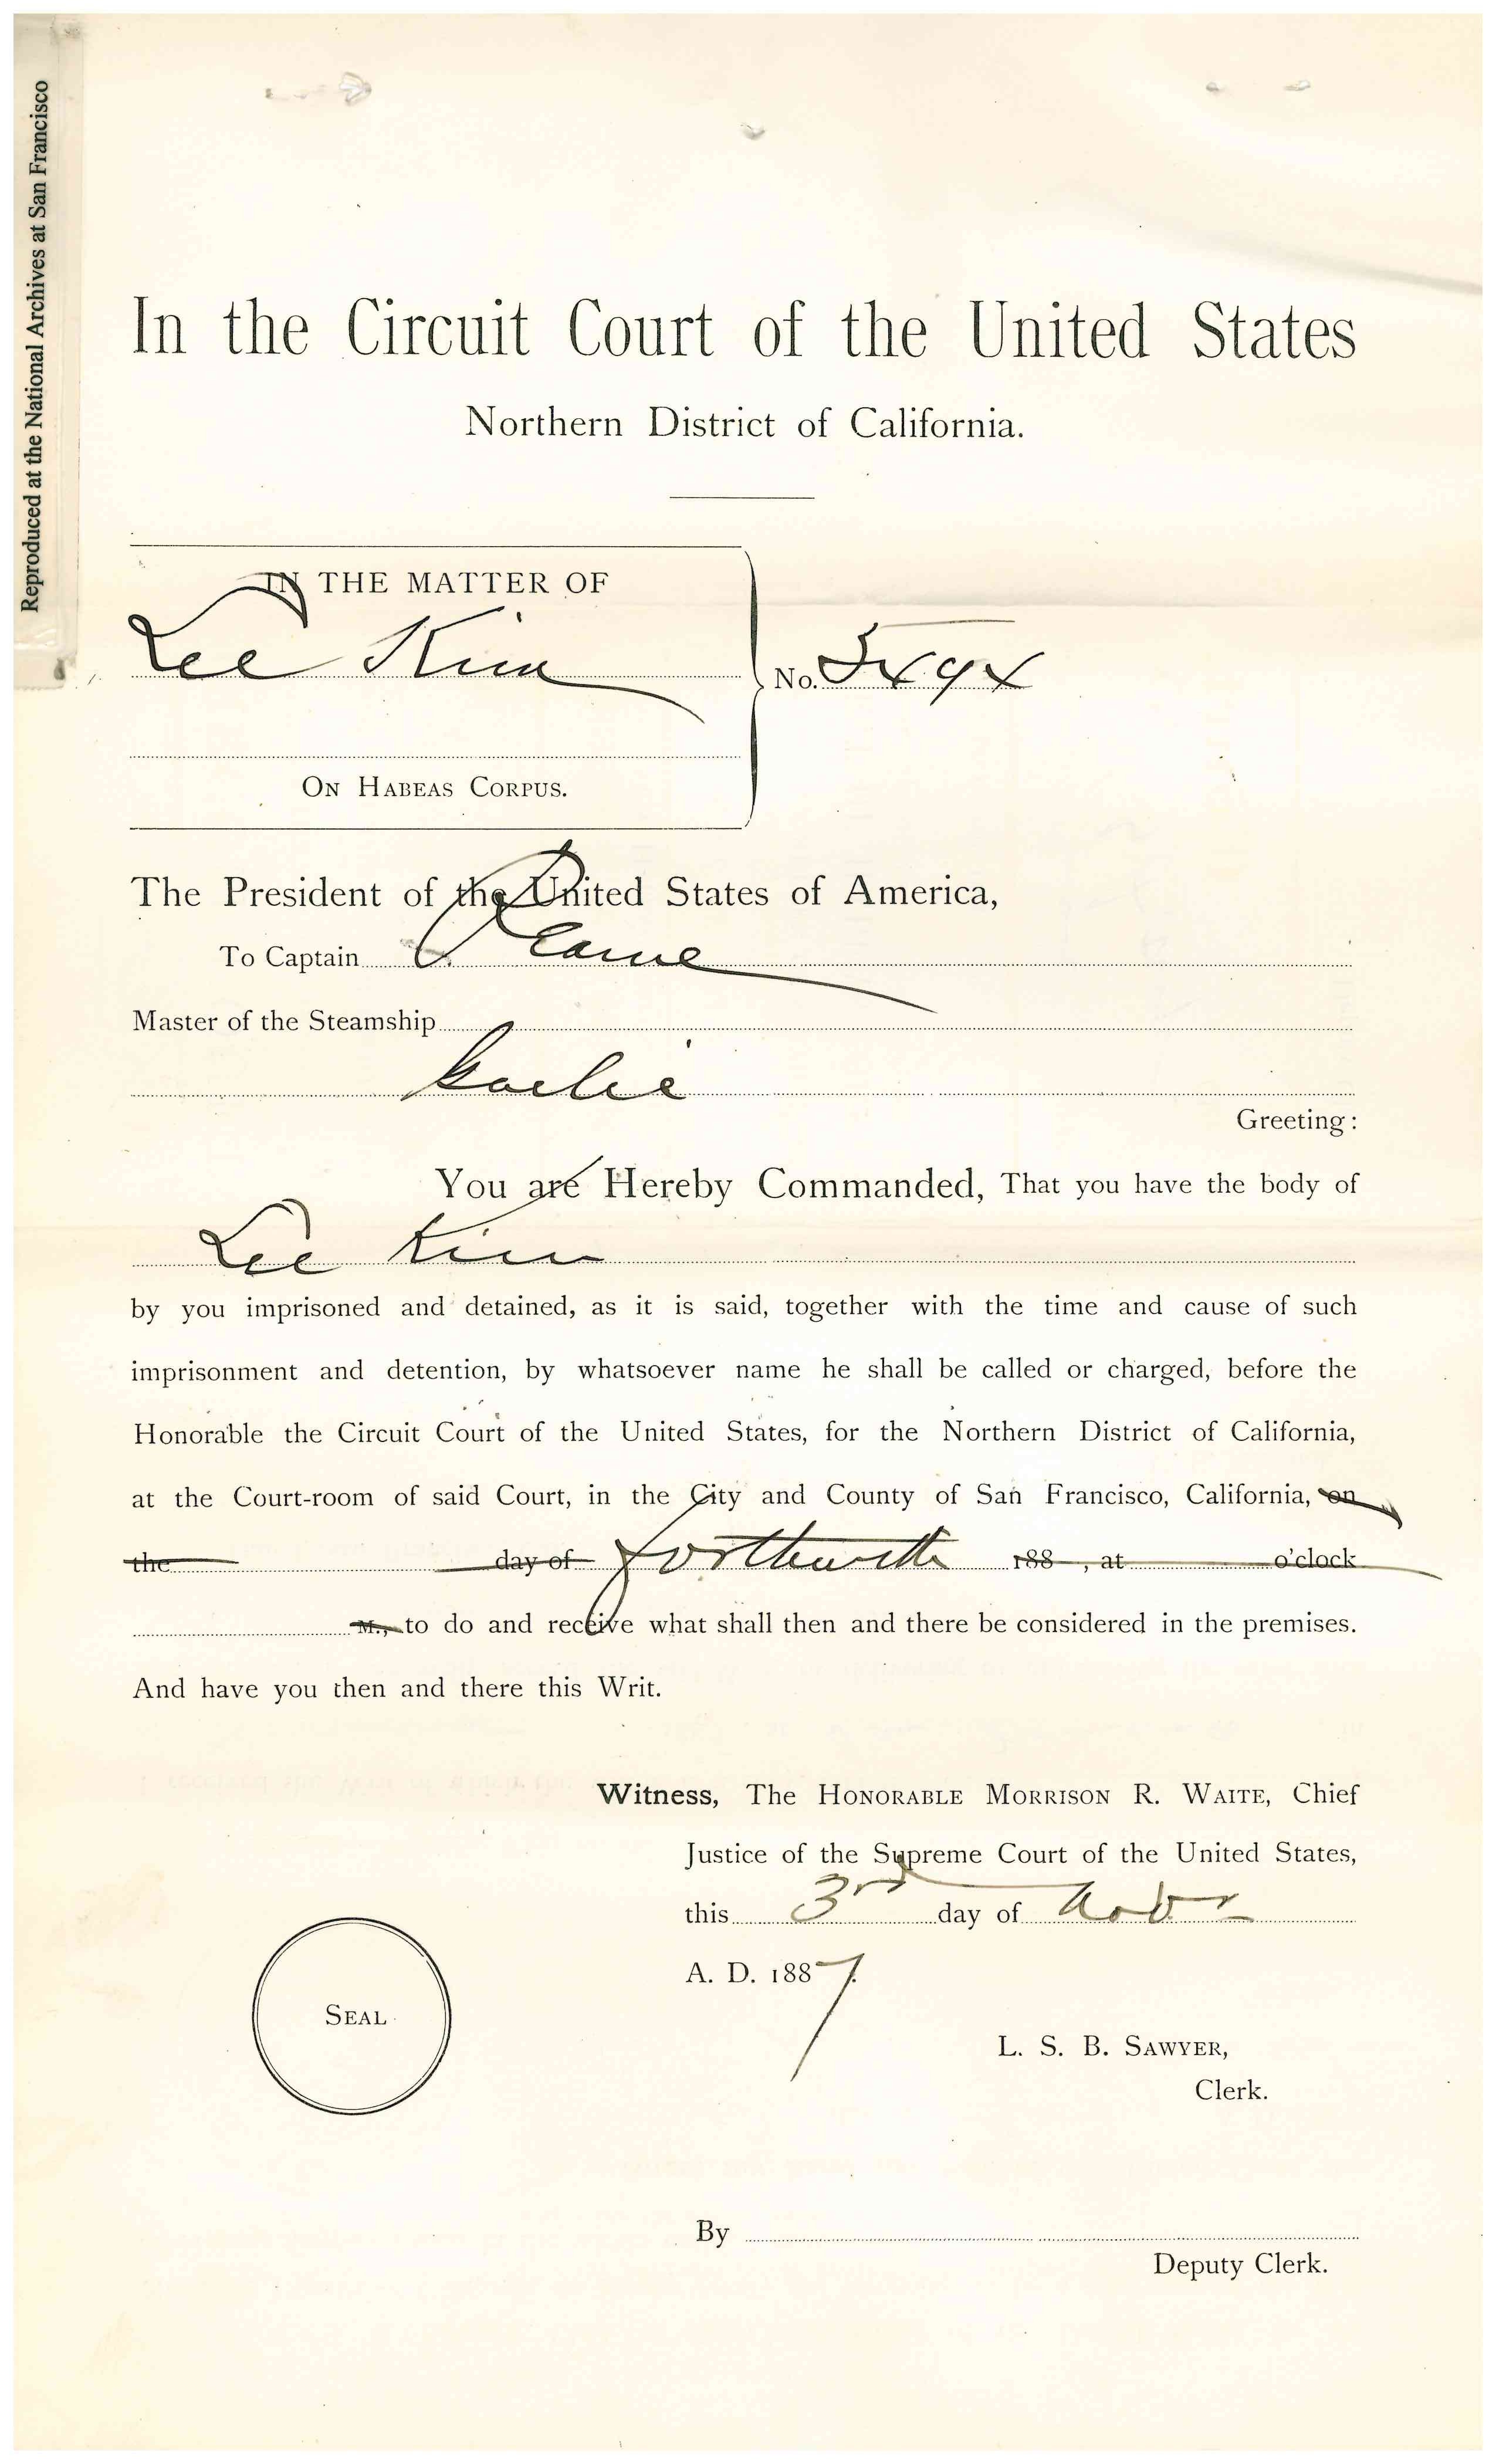 Reproduced at the National Archives at San Francisco
In the Circuit Court of the United States
Northern District of California.
IN THE MATTER OF
Lee Kim
No. 5494
ON HABEAS CORPUS.
The President of the United States of America,
To Captain Pearne
Master of the Steamship
Gaelic
Greeting:
You are Hereby Commanded, That you have the body of
Lee Kim
by you imprisoned and detained, as it is said, together with the time and cause of such
imprisonment and detention, by whatsoever name he shall be called or charged, before the
Honorable the Circuit Court of the United States, for the Northern District of California,
at the Court-room of said Court, in the City and County of San Francisco, California, on
the day of forthwith 188 , at o'clock
M., to do and receive what shall then and there be considered in the premises.
And have you then and there this Writ.
Witness, The HONORABLE MORRISON R. WAITE, Chief
Justice of the Supreme Court of the United States,
this 3rd day of Novr
A. D. 1887.
SEAL
L. S. B. SAWYER,
Clerk.
By
Deputy Clerk.